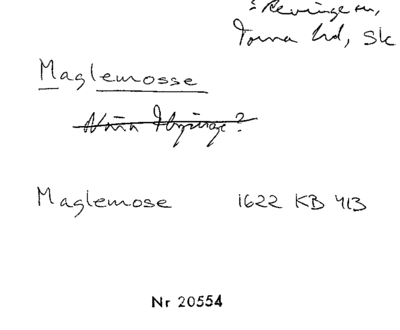 s Revinge sn,
Torna hd, Sk
Maglemosse
Maglemose 1622 KB 413
Nr 20554